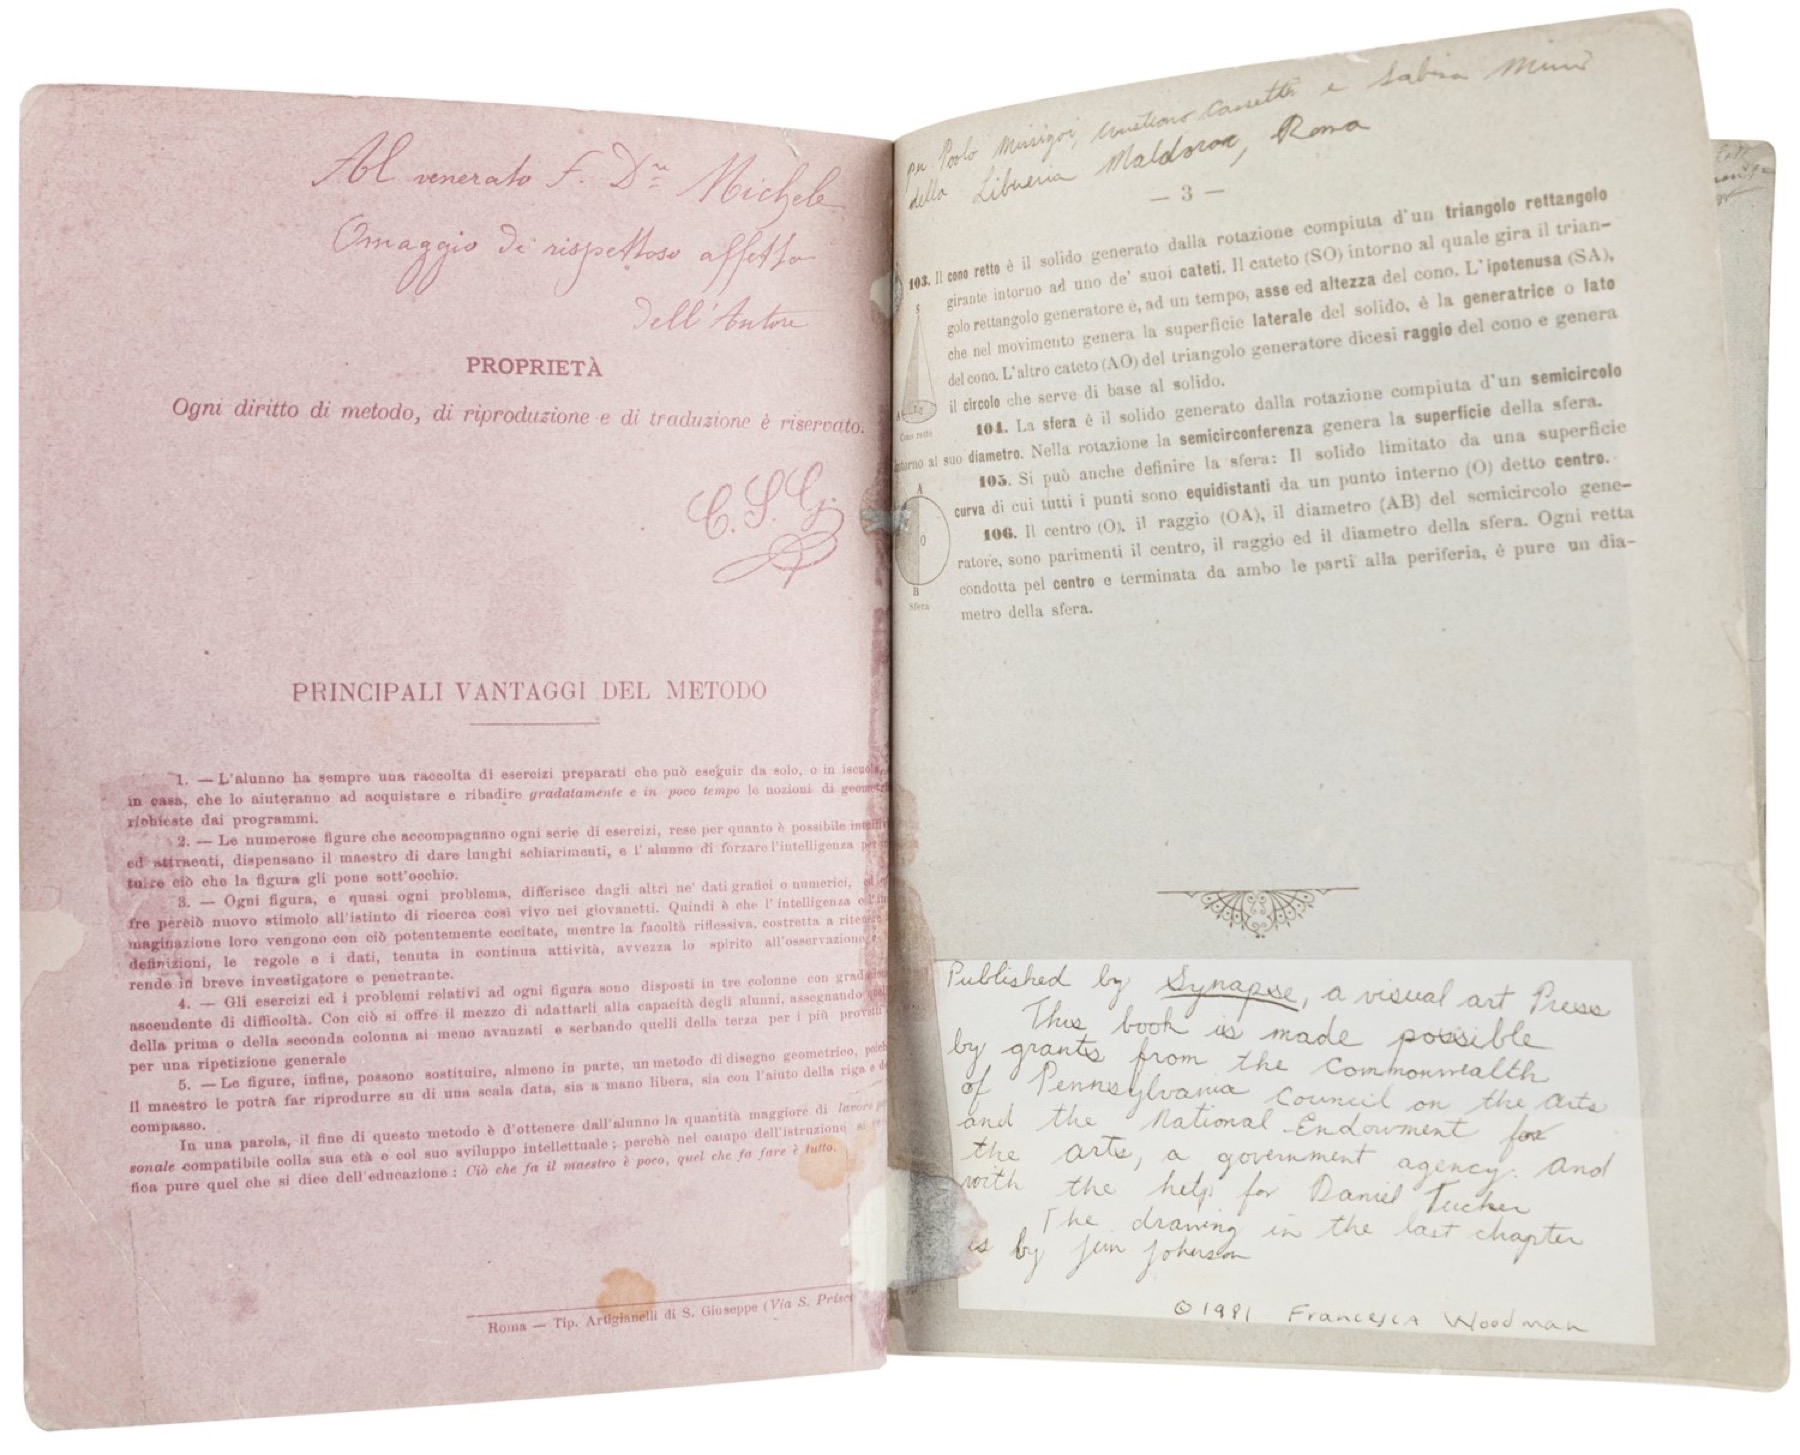 Al venerato F. Dre Michele
Omaggio di rispettoso affetto
dell'Autore
PROPRIETÀ
Ogni diritto di metodo, di riproduzione e di traduzione è riservato.
C. S. G.
PRINCIPALI VANTAGGI DEL METODO
1. — L'alunno ha sempre una raccolta di esercizi preparati che può eseguir da solo, o in iscuola
in casa, che lo aiuteranno ad acquistare e ribadire gradatamente e in poco tempo le nozioni di geomet
richieste dai programmi.
2. — Le numerose figure che accompagnano ogni serie di esercizi, rese per quanto è possibile
ed attraenti, dispensano il maestro di dare lunghi schiarimenti, e l'alunno di forzare l'intelligenza per
tuire ciò che la figura gli pone sott'occhio.
3. — Ogni figura, e quasi ogni problema, differisce dagli altri ne' dati grafici o numerici,
fre perciò nuovo stimolo all'istinto di ricerca così vivo nei giovanetti. Quindi è che l'intelligenza e
maginazione loro vengono con ciò potentemente eccitate, mentre la facoltà riflessiva, costretta a ritenere
definizioni, le regole e i dati, tenuta in continua attività, avvezza lo spirito all'osservazione
rende in breve investigatore e penetrante.
4. — Gli esercizi ed i problemi relativi ad ogni figura sono disposti in tre colonne con grad
ascendente di difficoltà. Con ciò si offre il mezzo di adattarli alla capacità degli alunni, assegnando
della prima o della seconda colonna ai meno avanzati e serbando quelli della terza per i più provetti
per una ripetizione generale
5. — Le figure, infine, possono sostituire, almeno in parte, un metodo di disegno geometrico, poichè
il maestro le potrà far riprodurre su di una scala data, sia a mano libera, sia con l'aiuto della riga e de
compasso.
In una parola, il fine di questo metodo è d'ottenere dall'alunno la quantità maggiore di lavoro per
sonale compatibile colla sua età e col suo sviluppo intellettuale; perchè nel campo dell'istruzione si
fica pure quel che si dice dell'educazione: Ciò che fa il maestro è poco, quel che fa fare è tutto.
Roma — Tip. Artigianelli di S. Giuseppe (Via S. Prisc
per Paolo Missigoi, Cristiano Cassetti e Sabina Minu
della Libreria Maldoror, Roma
— 3 —
103. Il cono retto è il solido generato dalla rotazione compiuta d'un triangolo rettangolo
girante intorno ad uno de' suoi cateti. Il cateto (SO) intorno al quale gira il trian-
golo rettangolo generatore è, ad un tempo, asse ed altezza del cono. L'ipotenusa (SA),
che nel movimento genera la superficie laterale del solido, è la generatrice o lato
del cono. L'altro cateto (AO) del triangolo generatore dicesi raggio del cono e genera
il circolo che serve di base al solido.
S
A
Cono retto
104. La sfera è il solido generato dalla rotazione compiuta d'un semicircolo
intorno al suo diametro. Nella rotazione la semicirconferenza genera la superficie della sfera.
105. Si può anche definire la sfera: Il solido limitato da una superficie
curva di cui tutti i punti sono equidistanti da un punto interno (O) detto centro.
106. Il centro (O), il raggio (OA), il diametro (AB) del semicircolo gene-
ratore, sono parimenti il centro, il raggio ed il diametro della sfera. Ogni retta
condotta pel centro e terminata da ambo le parti alla periferia, è pure un dia-
metro della sfera.
A
O
B
Sfera
Published by Synapse, a visual art Press
This book is made possible
by grants from the Commonwealth
of Pennsylvania Council on the Arts
and the National Endowment for
the arts, a government agency. And
with the help for Daniel Tucker
The drawing in the last chapter
is by Jim Johnson
©1981 Francesca Woodman